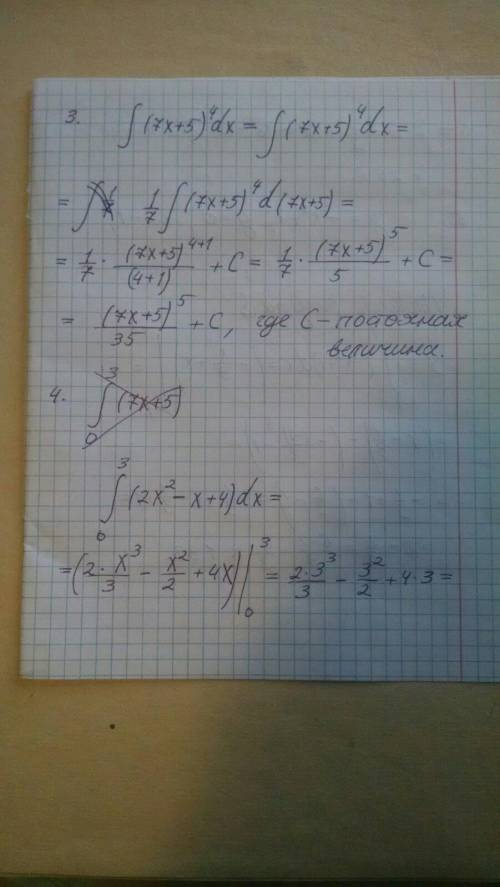 3. ∫(7x+5)⁴dx = ∫(7x+5)⁴dx =
= 1/7 ∫(7x+5)⁴d(7x+5) =
= 1/7 · (7x+5)⁴⁺¹/(4+1) + C = 1/7 · (7x+5)⁵/5 + C =
= (7x+5)⁵/35 + C, где C – постожная
величина.
4. ∫₀³ (7x+5)
∫₀³ (2x² – x + 4)dx =
= (2·x³/3 – x²/2 + 4x)|₀³ = 2·3³/3 – 3²/2 + 4·3 =